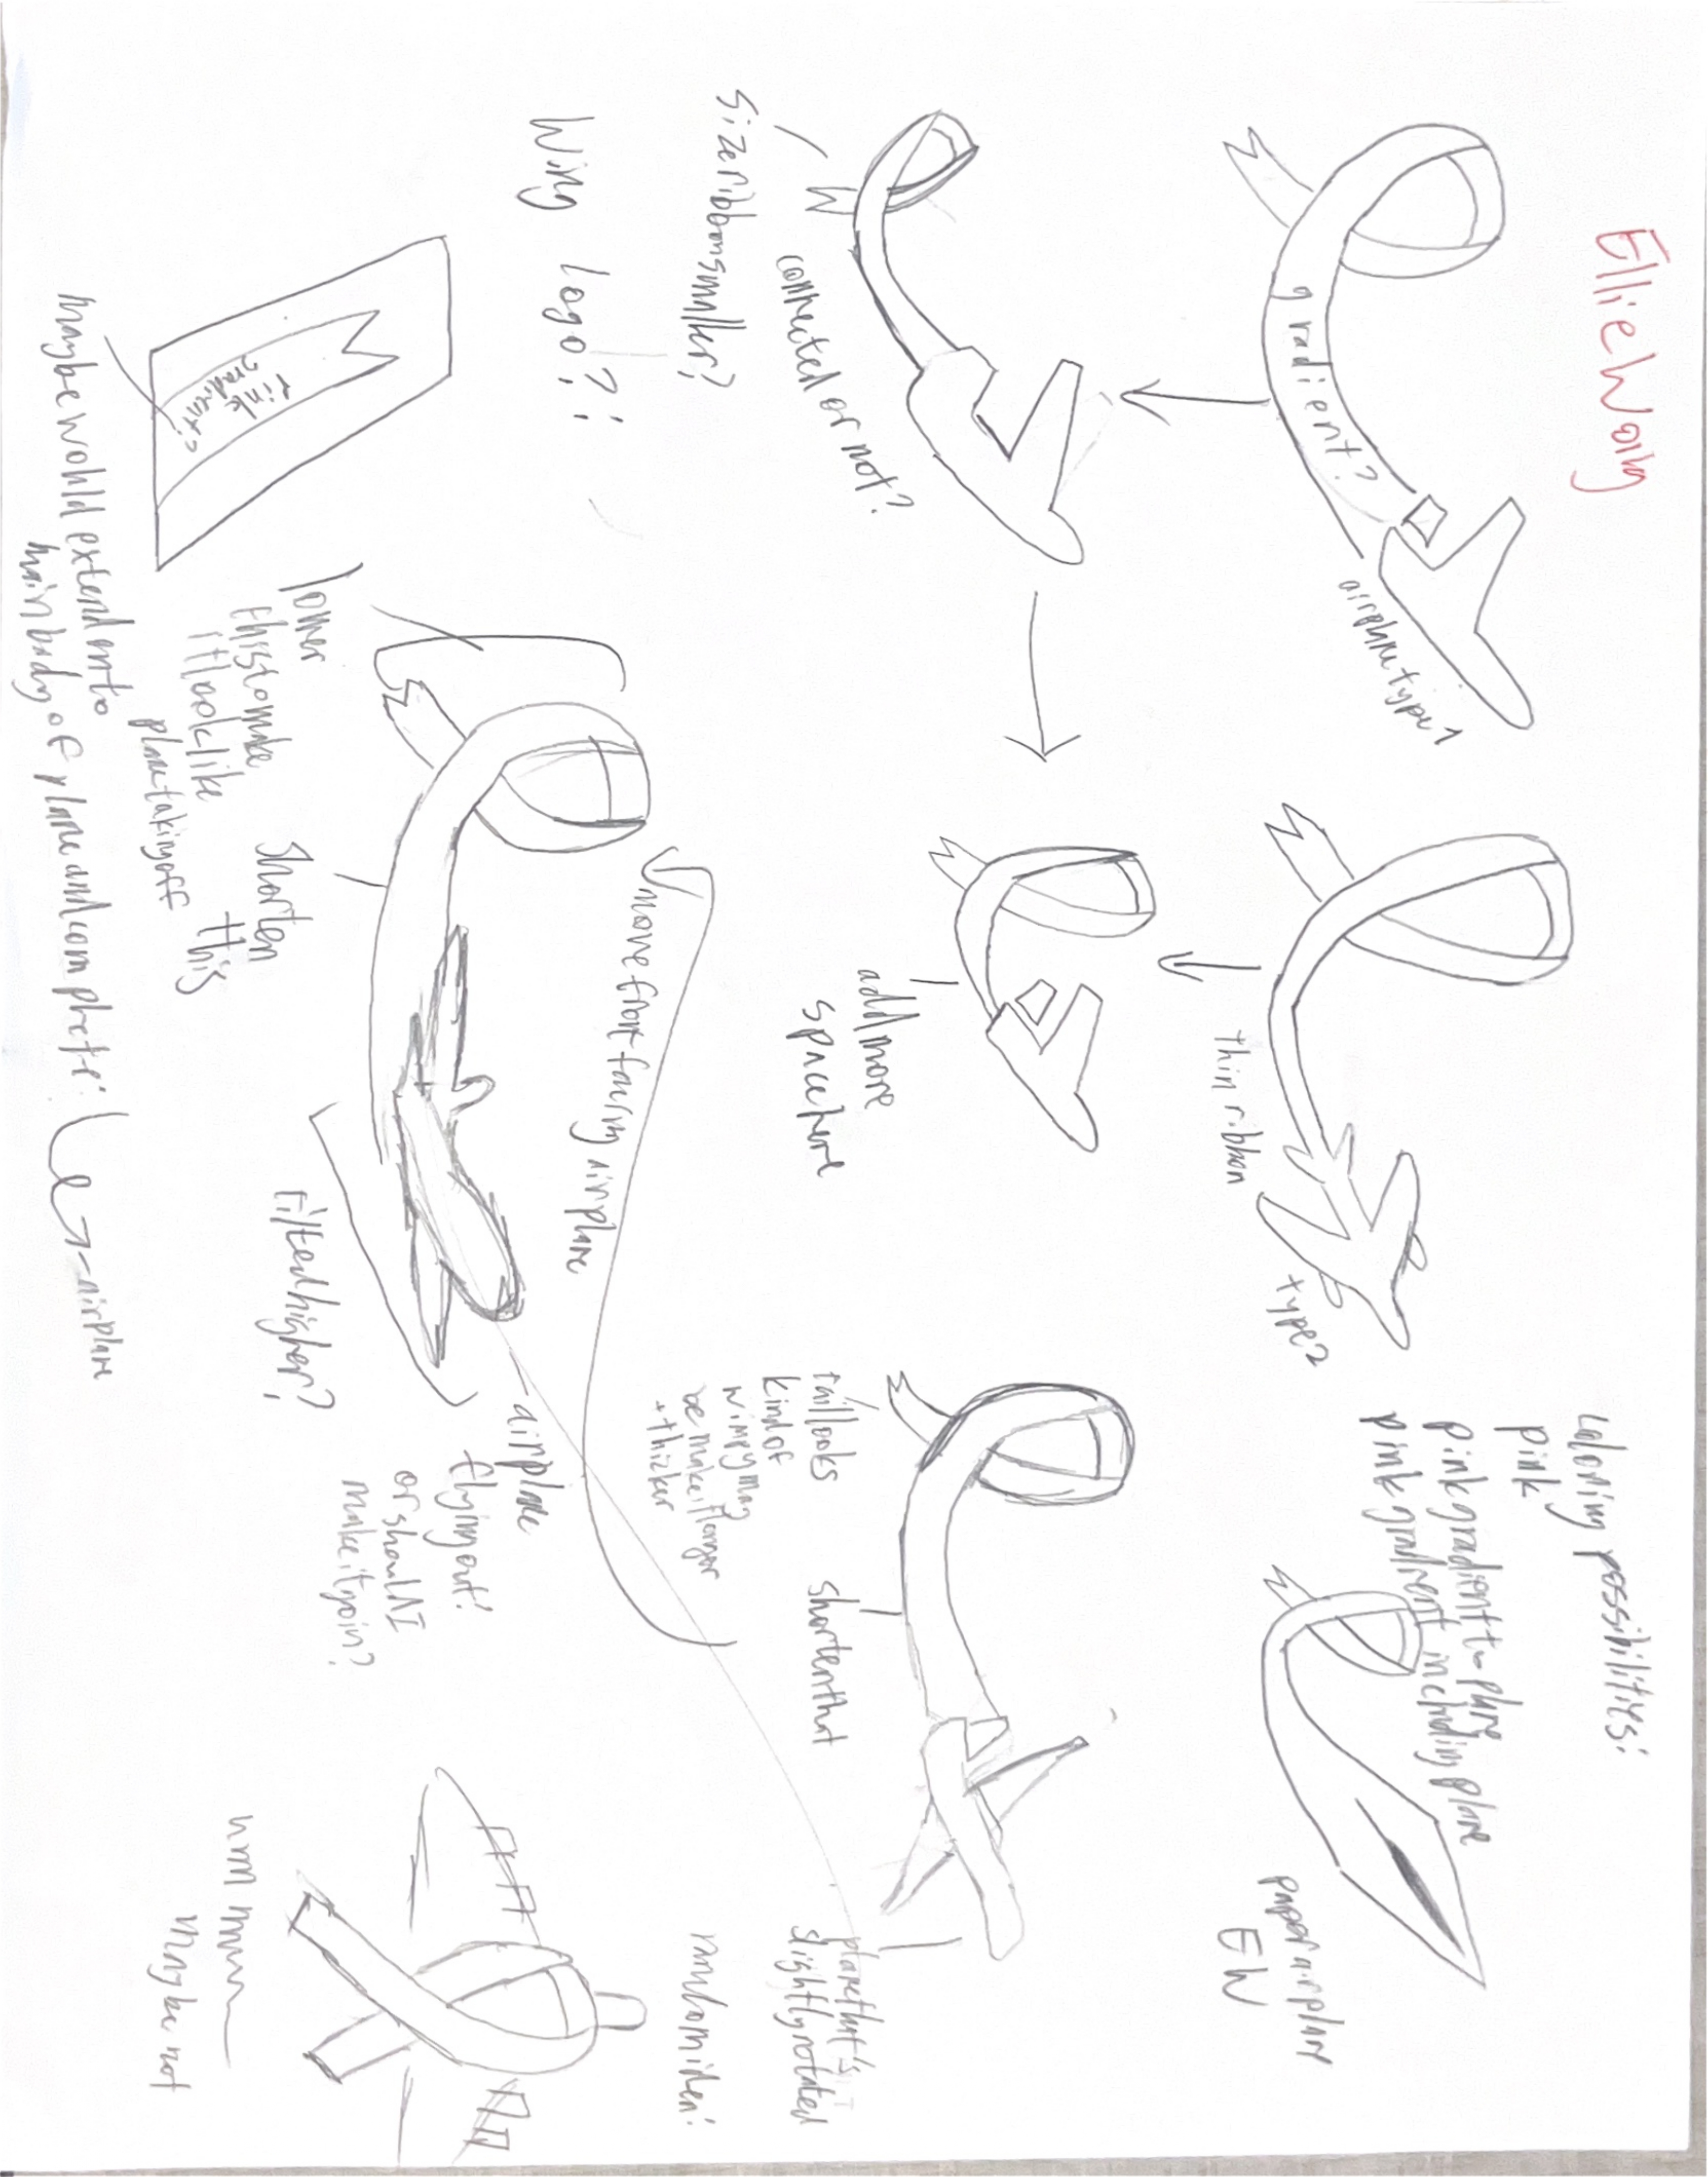 Ellie Wang
gradient?
airplane type 1
thin ribbon
type 2
coloring possibilities:
pink
pink gradient to plane
pink gradient including plane
paper airplane
EW
connected or not?
size ribbon smaller?
add more
space here
tail looks
kind of
wimpy may
be make it longer
+ thicker
shorten that
plane that's
slightly rotated
Wing logo?:
pink
gradient?
maybe would extend onto
main body of plane and complete:
airplane
lower
this to make
it look like
plane taking off
shorten
this
move front facing airplane
tilted higher?
airplane
flying out!
or should I
make it join?
random idea:
hmmmm
maybe not